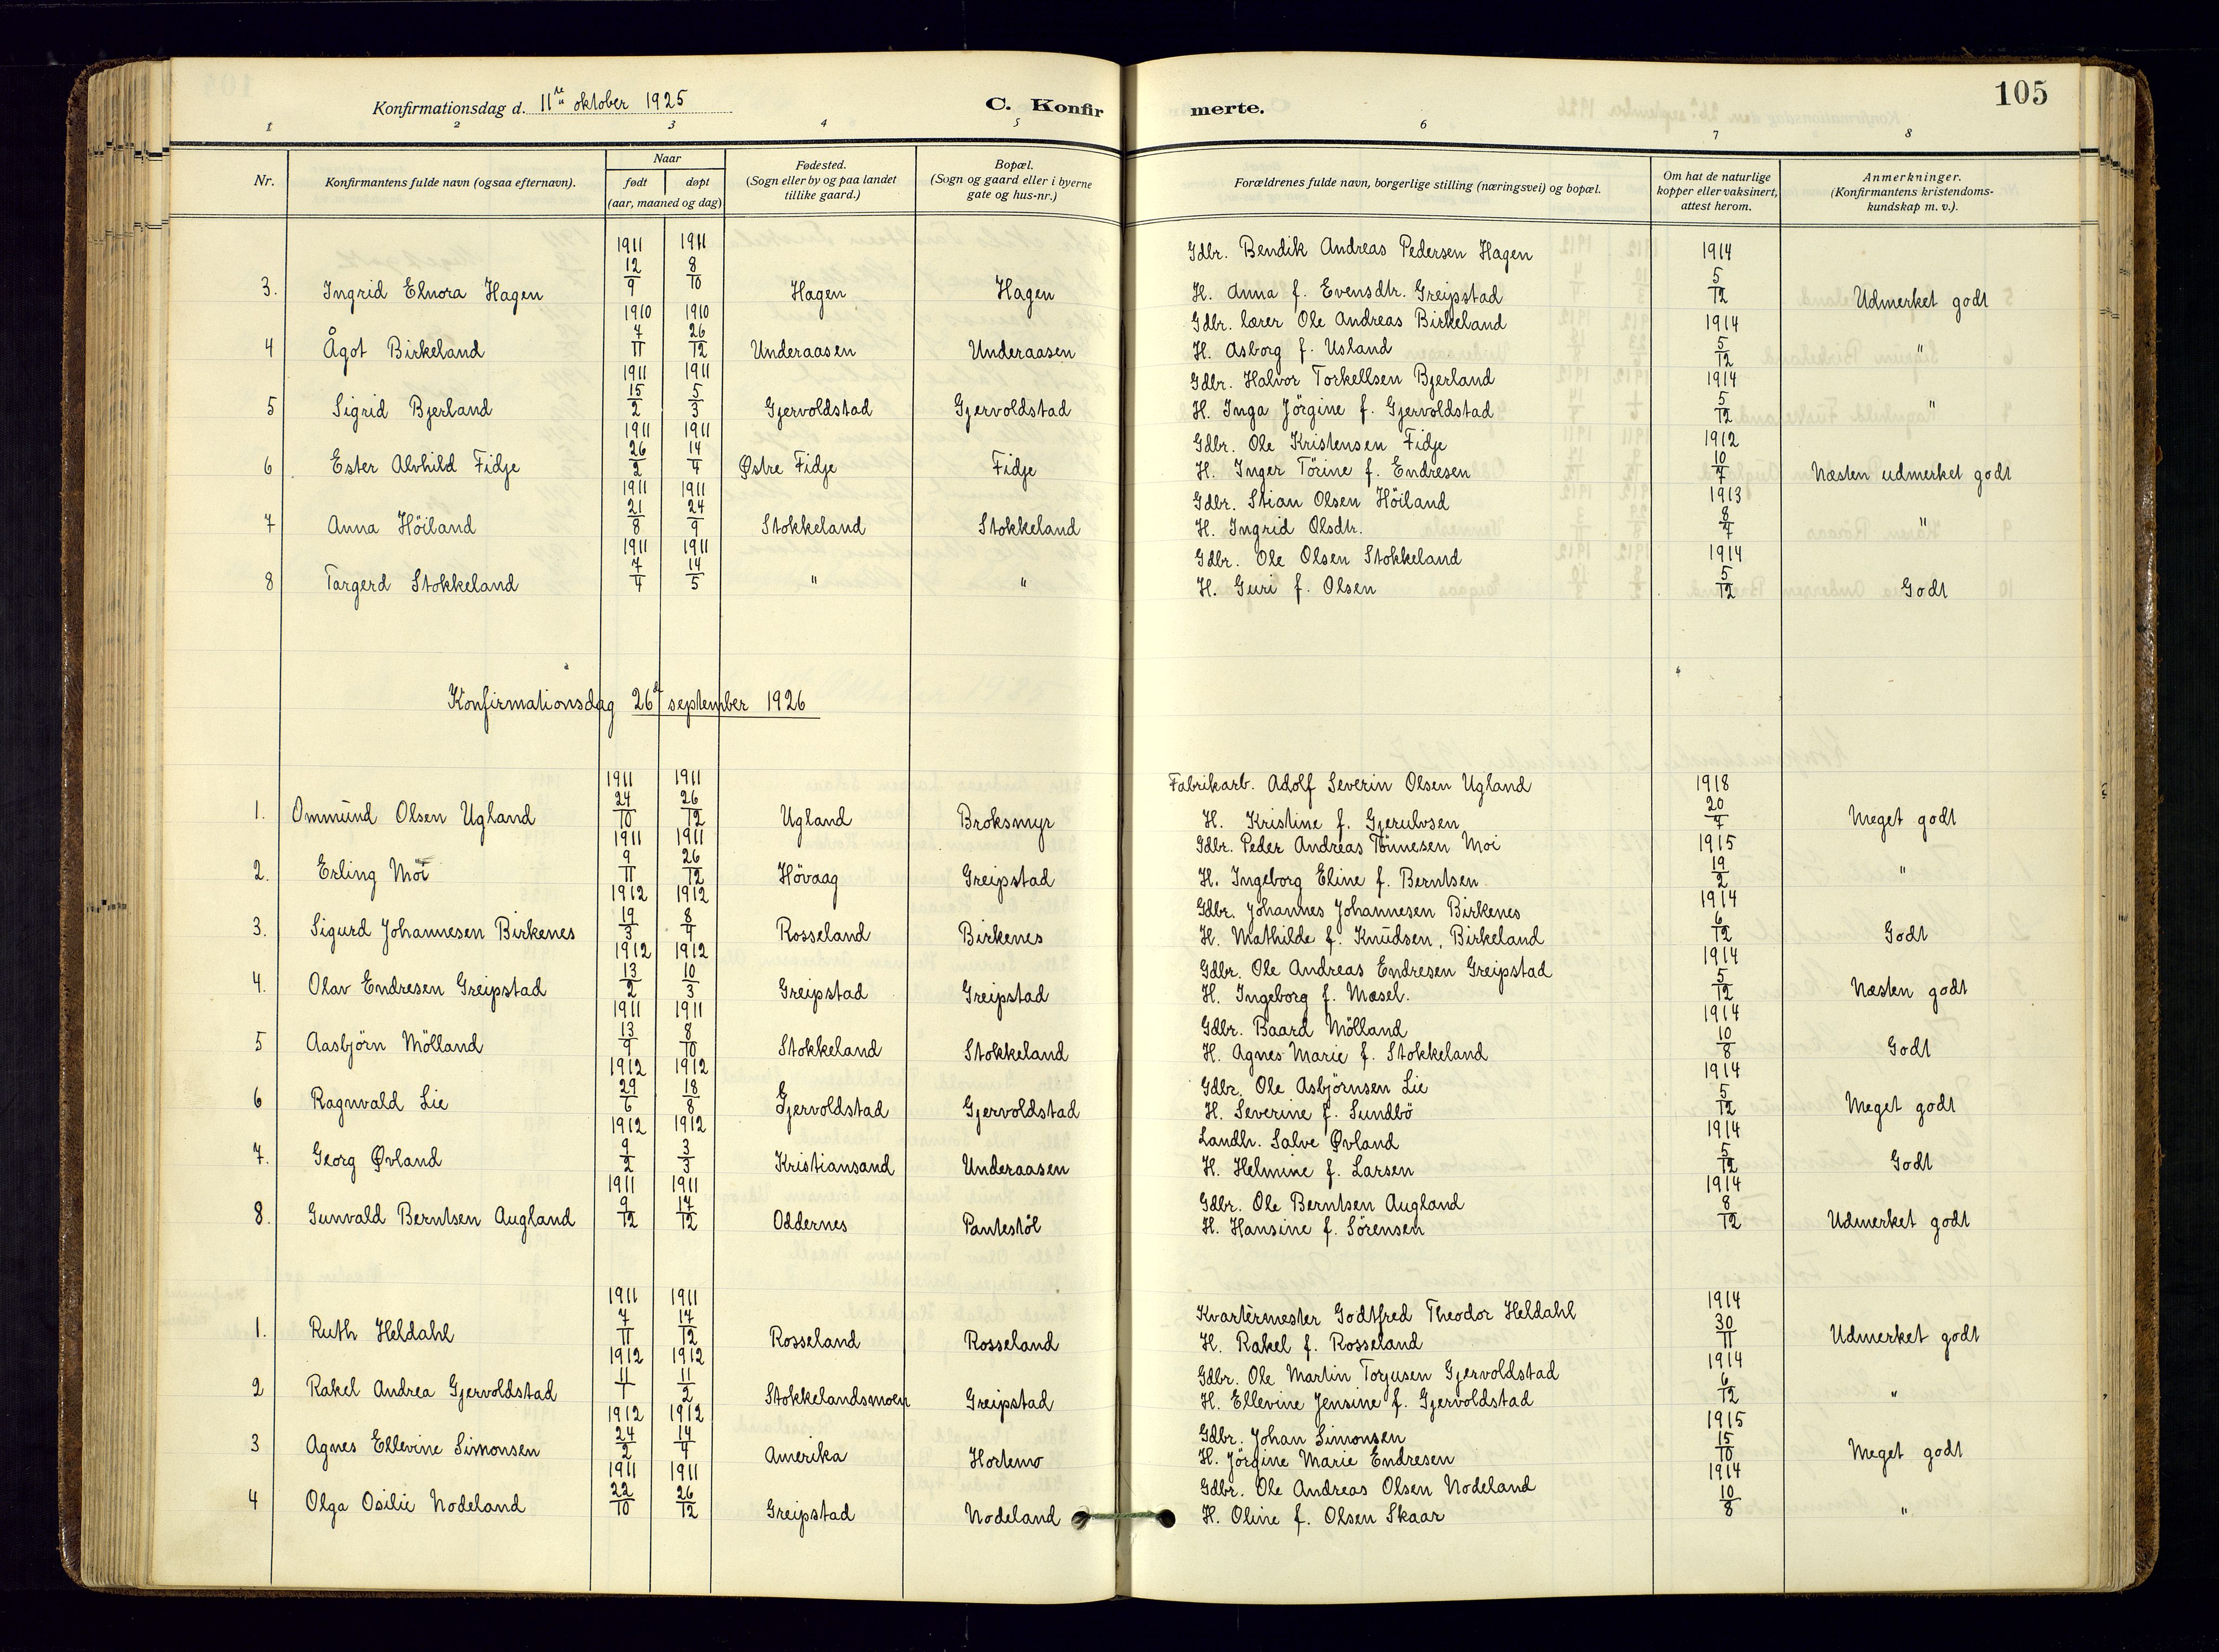 Konfirmationsdag d. 11te oktober 1925
C. Konfirmerte.
105
1 2 3 4 5 6 7 8
Nr.
Konfirmantens fulde navn (ogsaa efternavn).
Naar
født døpt
(aar, maaned og dag)
Fødested.
(Sogn eller by og paa landet
tillike gaard.)
Bopæl.
(Sogn og gaard eller i byerne
gate og hus-nr.)
Forældrenes fulde navn, borgerlige stilling (næringsvei) og bopæl.
Om hat de naturlige
kopper eller vaksinert,
attest herom.
Anmerkninger.
(Konfirmantens kristendoms-
kundskap m. v.).
1911 1911 Gdbr. Bendik Andreas Pedersen Hagen 1914
3. Ingrid Elnora Hagen 12/9 8/10 Hagen Hagen H. Anna f. Evensdtr. Greipstad 5/12 Udmerket godt
1910 1910 Gdbr. lærer Ole Andreas Birkeland 1914
4 Ågot Birkeland 7/11 26/12 Underaasen Underaasen H. Asborg f. Usland 5/12 "
1911 1911 Gdbr. Halvor Torkellsen Bjerland 1914
5 Sigrid Bjerland 15/2 5/3 Gjervoldstad Gjervoldstad H. Inga Jörgine f. Gjervoldstad 5/12 "
1911 1911 Gdbr. Ole Kristensen Fidje 1912
6 Ester Alvhild Fidje 26/2 14/4 Østre Fidje Fidje H. Inger Törine f. Endresen 10/7 Næsten udmerket godt
1911 1911 Gdbr. Stian Olsen Höiland 1913
7 Anna Höiland 21/8 24/9 Stokkeland Stokkeland H. Ingrid Olsdtr. 8/7 "
1911 1911 Gdbr. Ole Olsen Stokkeland 1914
8 Targerd Stokkeland 7/4 14/5 " " H. Guri f. Olsen 5/12 Godt
Konfirmationsdag 26d september 1926
1911 1911 Fabrikarb. Adolf Severin Olsen Ugland 1918
1. Ommund Olsen Ugland 24/10 26/12 Ugland Broksmyr H. Kristine f. Gjerulvsen 20/7 Meget godt
1911 1911 Gdbr. Peder Andreas Tönnesen Moi 1915
2. Erling Moi 9/11 26/12 Hövaag Greipstad H. Ingeborg Eline f. Berntsen 19/2 "
1912 1912 Gdbr. Johannes Johannesen Birkenes 1914
3. Sigurd Johannesen Birkenes 19/3 8/4 Rosseland Birkenes H. Mathilde f. Knudsen, Birkeland 6/12 Godt
1912 1912 Gdbr. Ole Andreas Endresen Greipstad 1914
4. Olav Endresen Greipstad 13/2 10/3 Greipstad Greipstad H. Ingeborg f. Mæsel. 5/12 Næsten godt
1911 1911 Gdbr. Baard Mölland 1914
5 Aasbjörn Mölland 13/9 8/10 Stokkeland Stokkeland H. Agnes Marie f. Stokkeland 10/8 Godt
1912 1912 Gdbr. Ole Asbjörnsen Lie 1914
6 Ragnvald Lie 29/6 18/8 Gjervoldstad Gjervoldstad H. Severine f. Sundbö 5/12 Meget godt
1912 1912 Landhr. Salve Øvland 1914
7. Georg Øvland 9/2 3/3 Kristiansand Underaasen H. Helmine f. Larsen 5/12 Godt
1911 1911 Gdbr. Ole Berntsen Augland 1914
8. Gunvald Berntsen Augland 9/12 17/12 Oddernes Pantestöl H. Hansine f. Sörensen 8/12 Udmerket godt
1911 1911 Kvartérmester Godtfred Theodor Heldahl 1914
1. Ruth Heldahl 7/11 17/12 Rosseland Rosseland H. Rakel f. Rosseland 30/11 Udmerket godt
1912 1912 Gdbr. Ole Martin Torjusen Gjervoldstad 1914
2 Rakel Andrea Gjervoldstad 11/1 11/2 Stokkelandsmoen Greipstad H. Ellevine Jensine f. Gjervoldstad 6/12 "
1912 1912 Gdbr. Johan Simonsen 1915
3 Agnes Ellevine Simonsen 24/2 14/4 Amerika Hortemo H. Jörgine Marie Endresen 15/10 Meget godt
1911 1911 Gdbr. Ole Andreas Olsen Nodeland 1914
4 Olga Osilie Nodeland 22/10 26/12 Greipstad Nodeland H. Oline f. Olsen Skaar 10/8 "